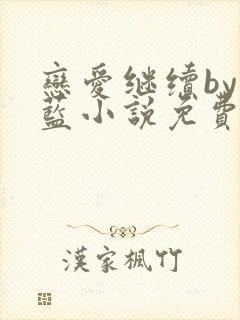 戀愛继续by
藍小說免費
漢家楓竹